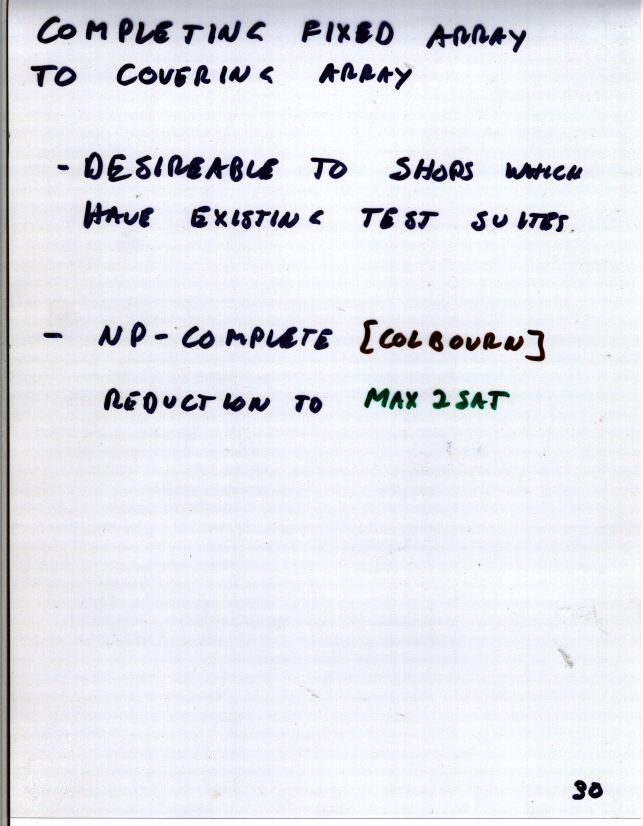 COMPLETING FIXED ARRAY
TO COVERING ARRAY
- DESIREABLE TO SHOPS WHICH
HAVE EXISTING TEST SUITES.
- NP-COMPLETE [COLBOURN]
REDUCTION TO MAX 2SAT
30